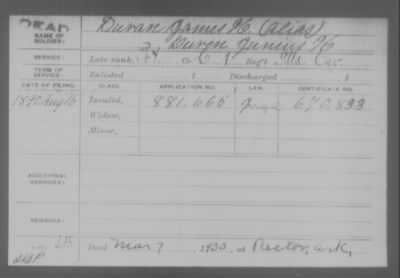 DEAD
NAME OF SOLDIER:
Duran James H (alias)
Duren Junius H
SERVICE:
Late rank, Co. C, 1 Reg't Cav.
TERM OF SERVICE:
Enlisted 1 Discharged 1
DATE OF FILING. CLASS. APPLICATION NO. LAW. CERTIFICATE NO.
1890 Aug 16 Invalid, 881.665
Widow,
Minor,
ADDITIONAL SERVICES:
REMARKS:
Died Mar 7 1933, at Rector, Ark,